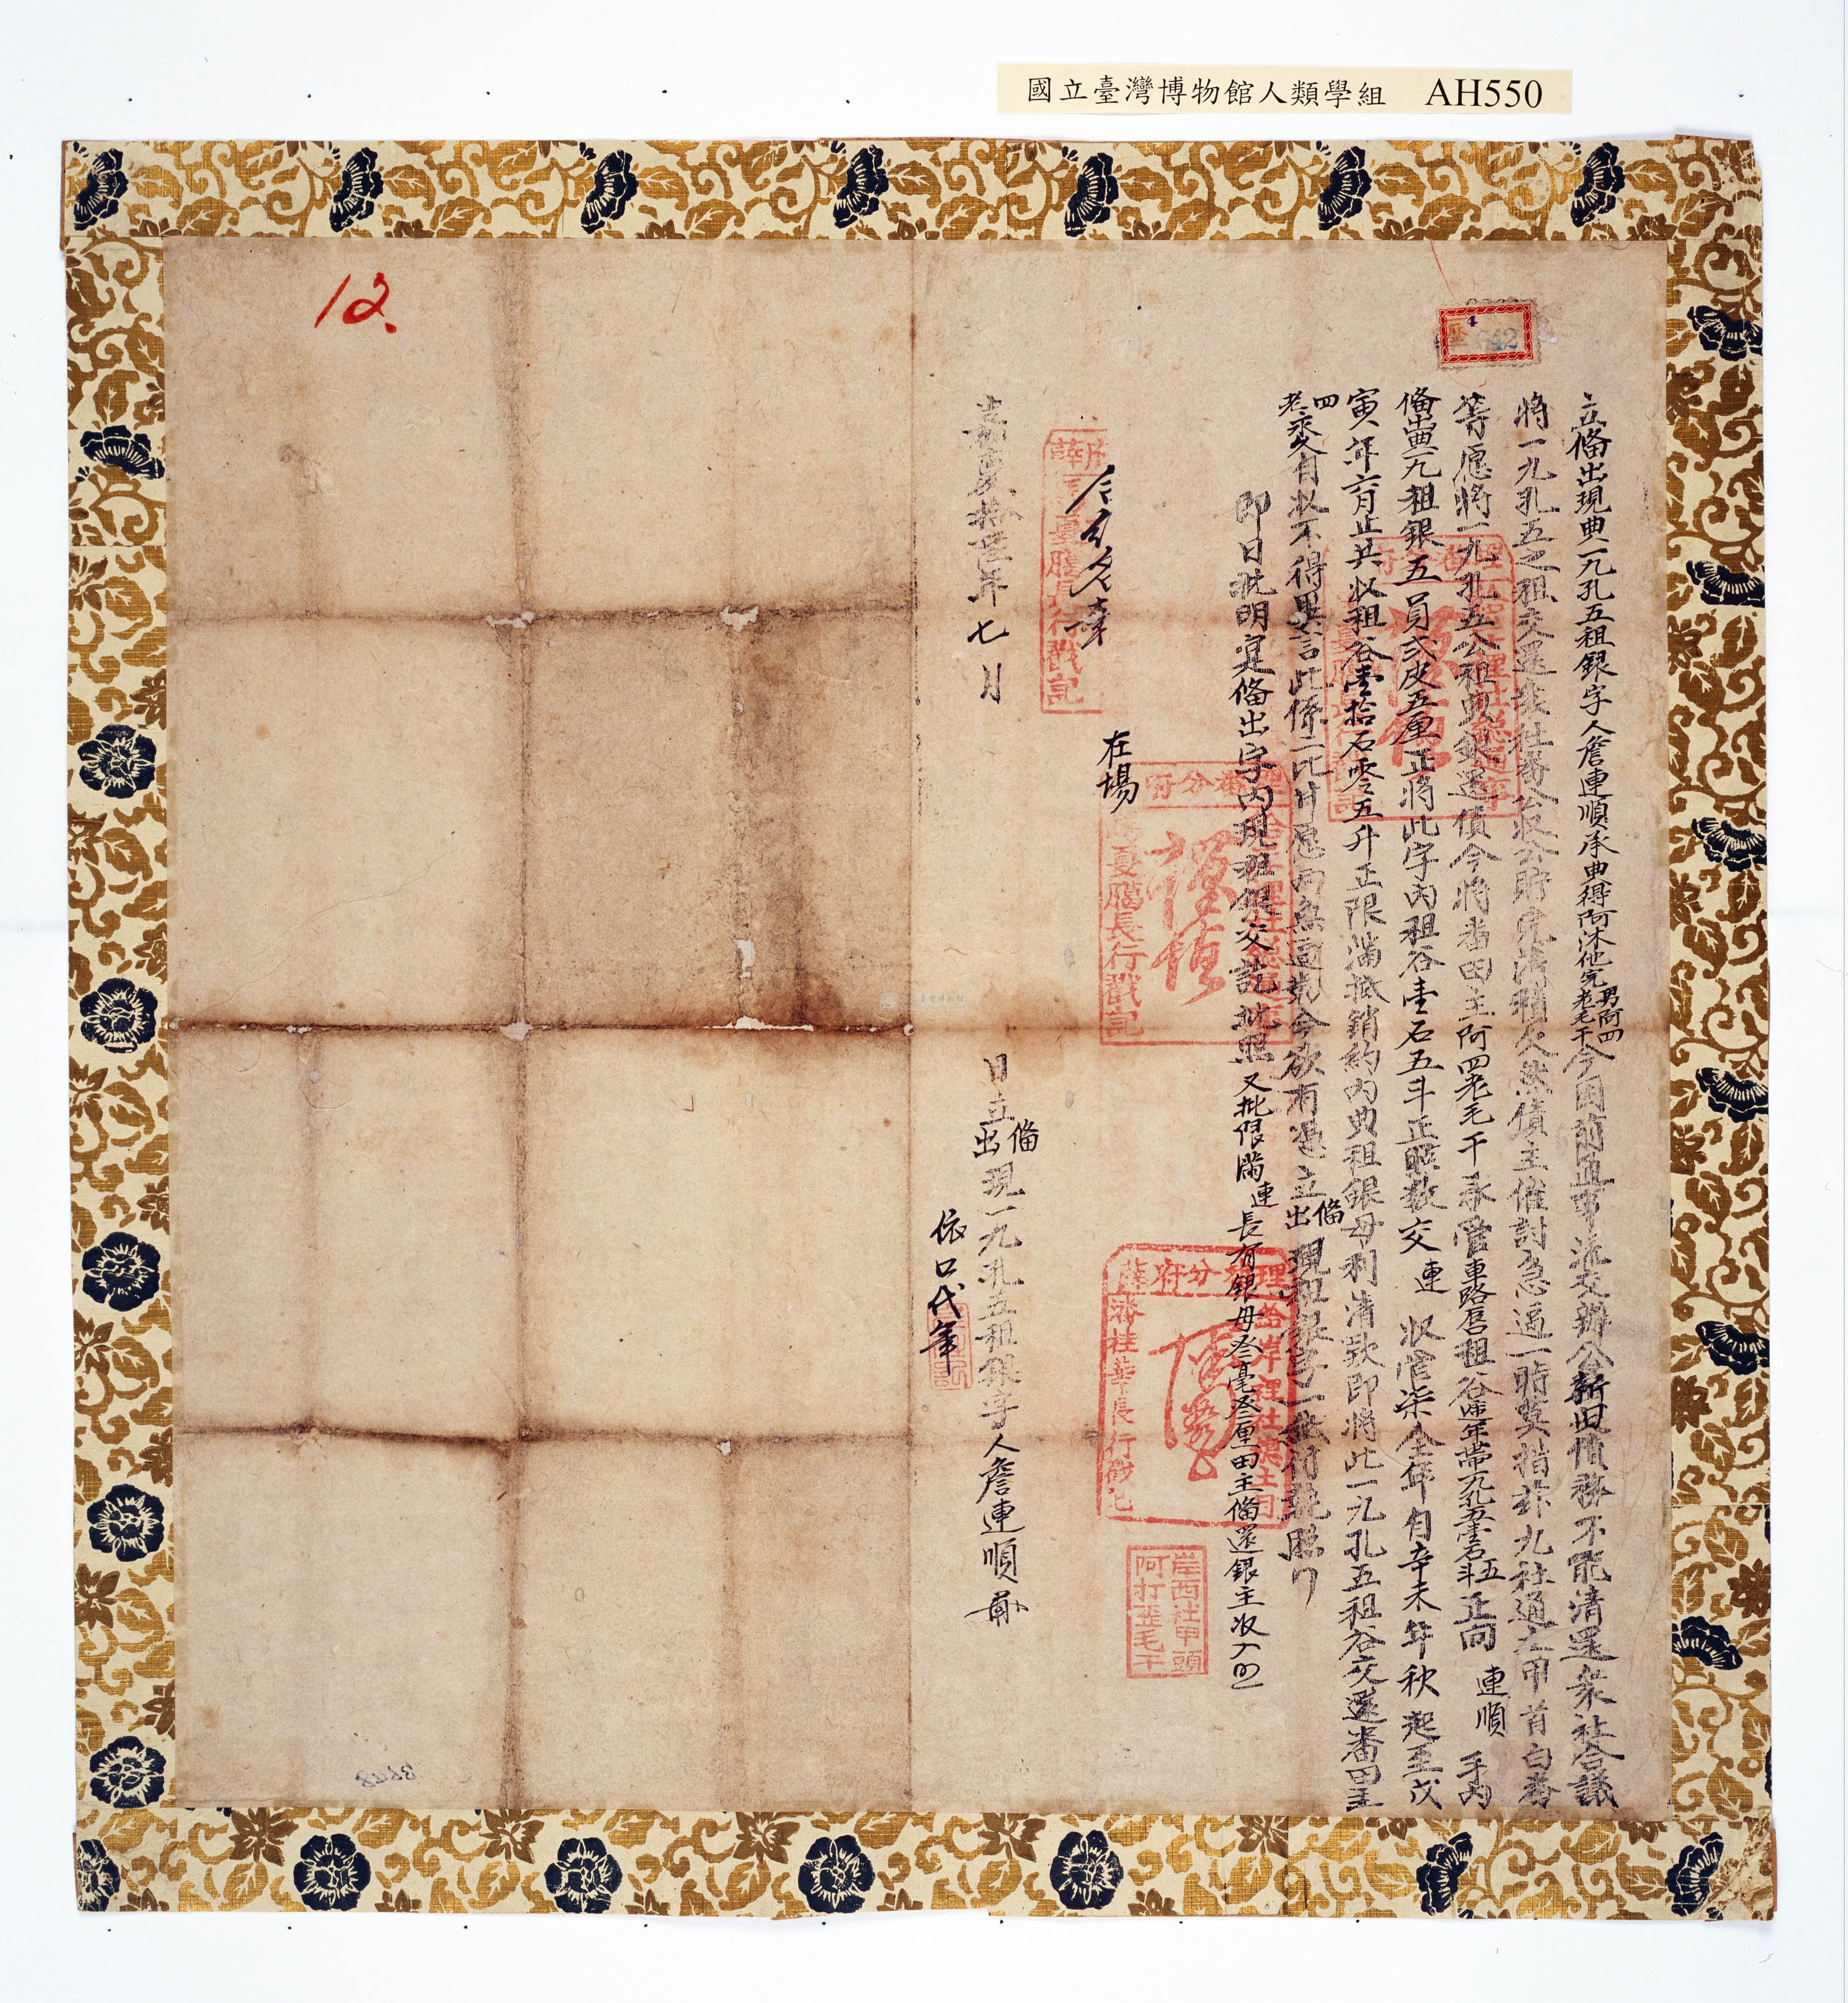 國立臺灣博物館人類學組 AH550
12.
42
立備出現典一九孔五租銀字人詹連順承典得阿沐他完男阿四老毛干今因前通事潘文辦公新旧債務不能清還衆社合議
將一九孔五之租交還衆社番公收公貯完清積欠然債主催討急逼一時莫措於九社通土甲首白番
等愿將一九孔五公租典銀還債今將番田主阿四老毛干承管車路唇租谷逐年帶一九孔五壹石五斗正向連順手內
備出典一九租銀五員弍皮五厘正將此字內租谷壹石五斗正照数交連收管渠仝年自辛未年秋起至戊
寅年六月止共收租谷壹拾石零五升正限滿抵銷約內典租銀母利清款即將此一九孔五租谷交還番田主
四老永久自收不得異言此係二比甘愿兩無逼勒今欲有凴立備出現租銀字一紙付執照
即日批明寔備出字內現租銀交訖批照又批限滿連長有銀母叁毫叁厘田主備還銀主收入
理番分府
岸西社甲頭阿打歪毛干
在場
嘉慶拾陸年七月 日立備出現一九孔五租銀字人詹連順
依口代筆